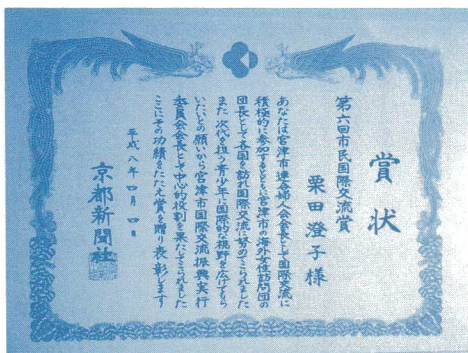 賞状
第六回市民国際交流賞
粟田澄子様
あなたは宮津市連合婦人会会長として国際交流に
積極的に参加するとともに宮津市の海外女性訪問団の
団長として各国を訪れ国際交流に努めてこられました
また次代を担う青少年に国際的な視野を広げてもら
いたいとの願いから宮津市国際交流振興実行
委員会会長として中心的役割を果たしてこられました
ここにその功績をたたえ賞を贈り表彰します
平成八年四月四日
京都新聞社